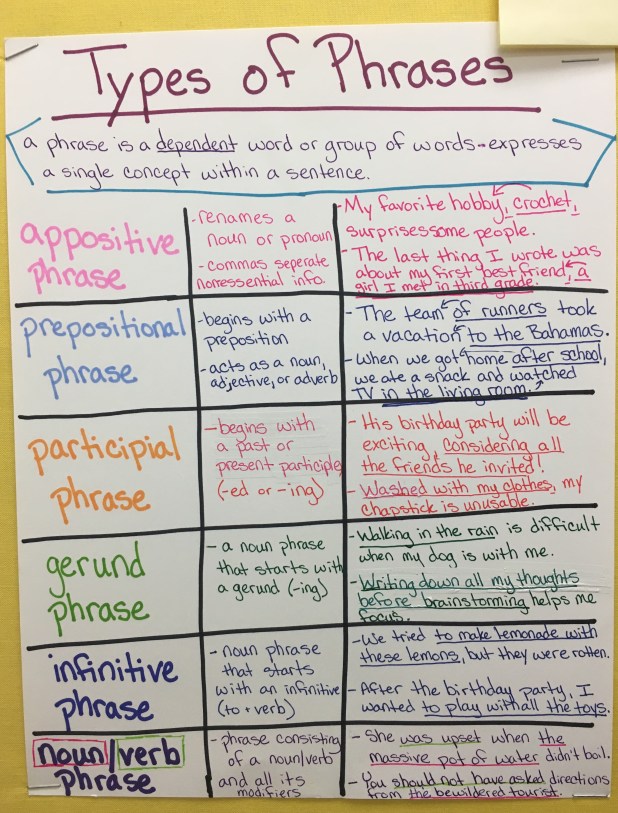 Types of Phrases
a phrase is a dependent word or group of words-expresses
a single concept within a sentence.
appositive
phrase
-renames a
noun or pronoun
-commas seperate
nonessential info.
-My favorite hobby, crochet,
surprises some people.
-The last thing I wrote was
about my first best friend, a
girl I met in third grade.
prepositional
phrase
-begins with a
preposition
-acts as a noun,
adjective, or adverb
-The team of runners took
a vacation to the Bahamas.
-When we got home after school,
we ate a snack and watched
TV in the living room.
participial
phrase
-begins with
a past or
present participle
(-ed or -ing)
- His birthday party will be
exciting, considering all
the friends he invited!
- Washed with my clothes, my
chapstick is unusable.
gerund
phrase
- a noun phrase
that starts with
a gerund (-ing)
-Walking in the rain is difficult
when my dog is with me.
-Writing down all my thoughts
before brainstorming helps me
focus.
infinitive
phrase
- noun phrase
that starts
with an infinitive
(to + verb)
-We tried to make lemonade with
these lemons, but they were rotten.
-After the birthday party, I
wanted to play with all the toys.
noun/verb
phrase
- phrase consisting
of a noun/verb
and all its
modifiers
- She was upset when the
massive pot of water didn't boil.
- You should not have asked directions
from the bewildered tourist.